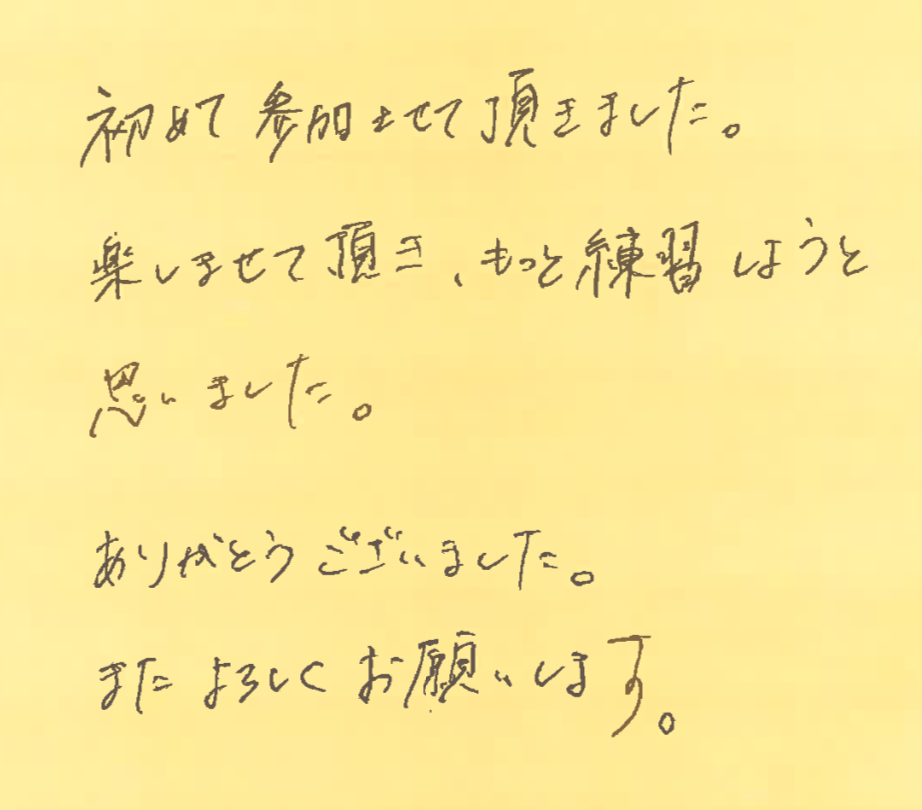 初めて参加させて頂きました。
楽しませて頂き、もっと練習しようと
思いました。
ありがとうございました。
またよろしくお願いします。